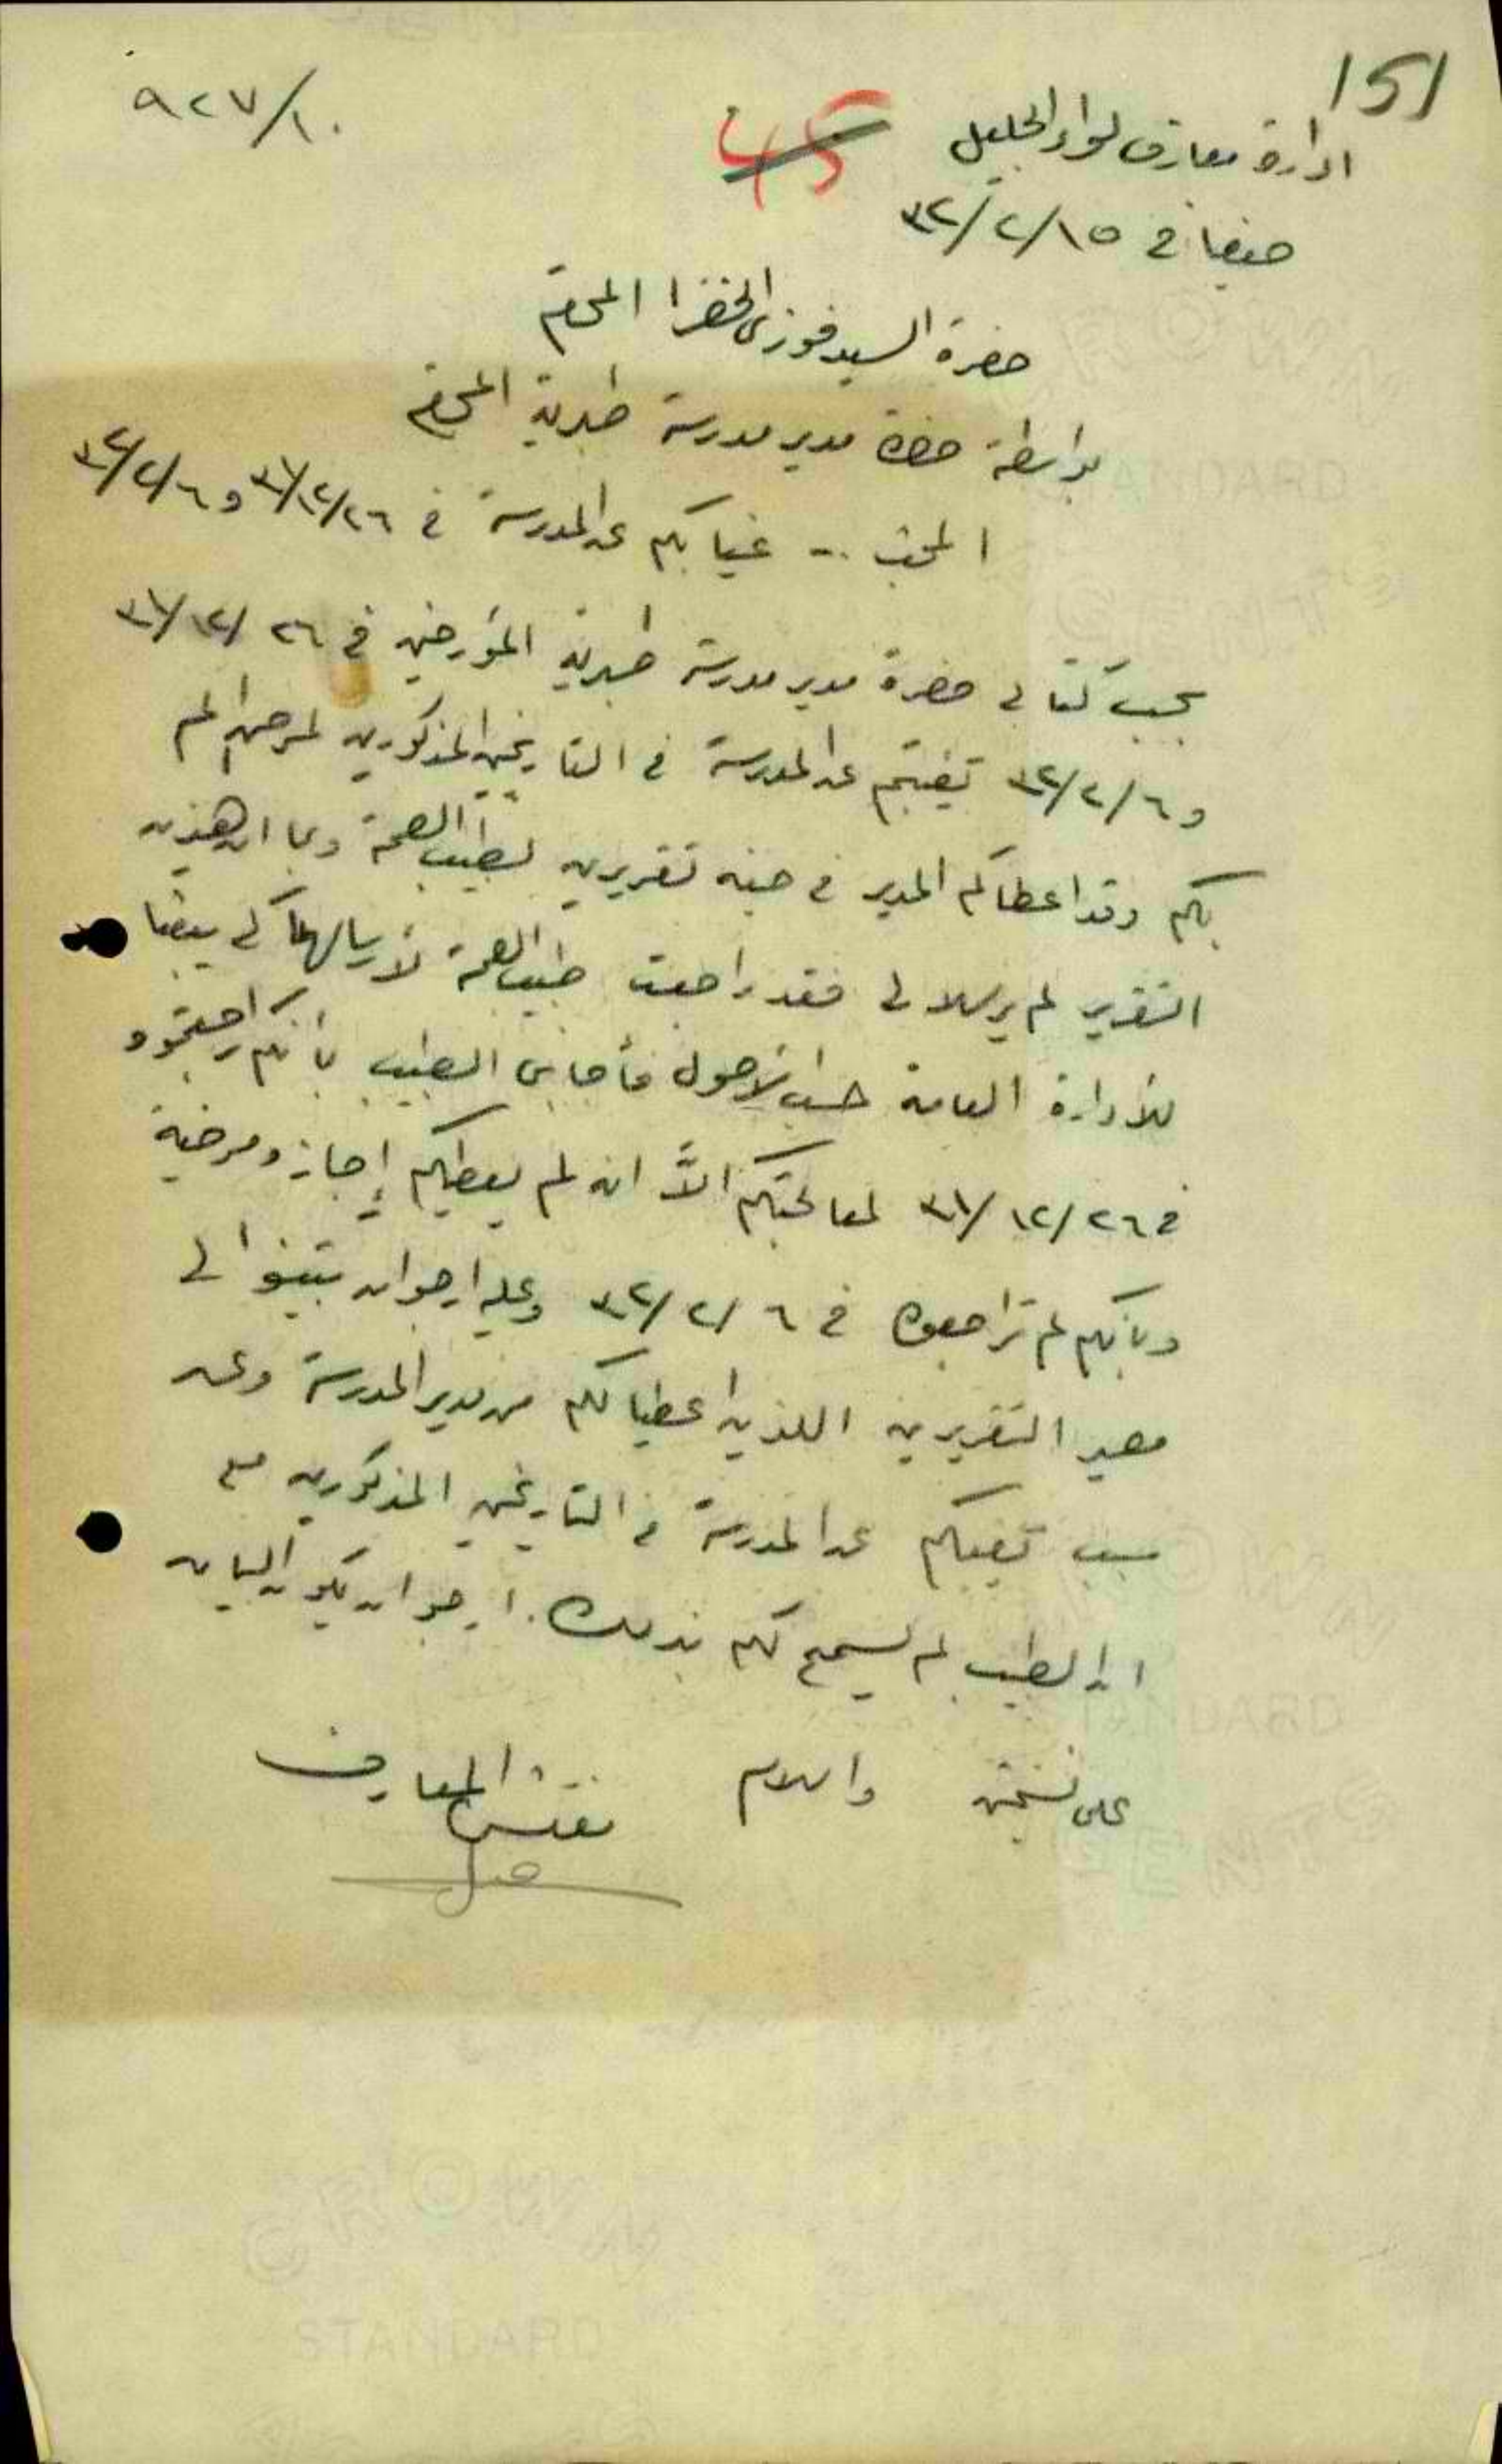 151
٩٢٧/١٠
45
ادارة معارف لواء الجليل
حيفا في ٣٢/٢/١٥
حضرة السيد فوزي الخضرا المحترم
بواسطة حضرة مدير مدرسة طبرية المحترم
المبحث -- غيابكم عن المدرسة في ٣١/١٢/٢٦ و ٣٢/٢/٦
بحسب كتابي حضرة مدير مدرسة طبرية المؤرخين في ٣١/١٢/٢٦
و ٣٢/٢/٦ تغيبتم عن المدرسة في التاريخين المذكورين لمرض الم
بكم وقد اعطاكم المدير في حينه تقريرين لطبيب الصحة وبما ان هذين
التقرير لم يرسلا لي فقد راجعت طبيب الصحة لأرسالهما لي
للأدارة العامة حسب الاصول فأجابني الطبيب بأنكم راجعتموه
في ٣١/١٢/٢٦ لمعالجتكم الاَّ انه لم يعطيكم إجازه مرضية
وبأنكم لم تراجعوه في ٣٢/٢/٦ وعليه ارجو ان تبينوا لي
مصير التقريرين اللذين اعطيا لكم من مدير المدرسة وعن
سبب تغيبكم عن المدرسة في التاريخين المذكورين مع
ان الطبيب لم يسمح لكم بذلك. ارجو ان يكون البيان
على نسختين والسلام مفتش المعارف